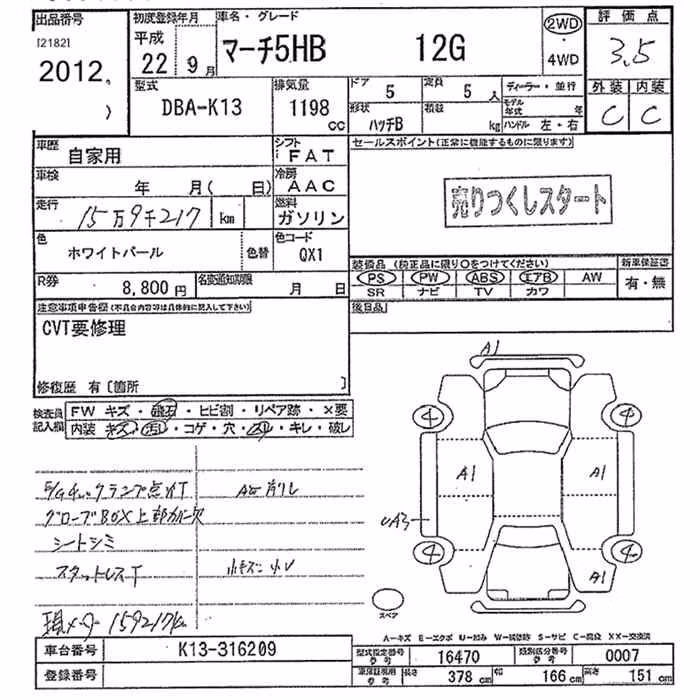 出品番号 初度登録年月 車名・グレード 評価点
[2182]
2012
平成
22 年 9 月 マーチ5HB 12G 2WD・4WD 3.5
型式 排気量 ドア 5 定員 5 人 ディーラー・並行 外装 内装
DBA-K13 1198 cc 形状 ハッチB 積載 kg モデル年式 年 ハンドル 左・右 C C
車歴 自家用 シフト FAT セールスポイント(正常に機能するものに限ります)
車検 年 月( 日) 冷房 AAC
走行 15万9千217 km 燃料 ガソリン
売りつくしスタート
色 ホワイトパール 色替 色コード QX1
R券 8,800円 名変通知期限 月 日
装備品 (純正品に限り○をつけてください) 新車保証書
PS PW ABS エアB AW 有・無
SR ナビ TV カワ
注意事項申告欄(不具合内容等は具体的に記入して下さい) 後日品
CVT要修理
修復歴 有〔箇所 〕
検査員記入欄 FW キズ・飛石・ヒビ割・リペア跡・×要
内装 キズ・汚レ・コゲ・穴・スレ・キレ・破レ
A1
4 4
A1 A1
UA3
4 4
A1
E/Gチェックランプ点灯
グローブBOX上部
シートシミ
スタットレスT
現メーター159217km
スペア
A-キズ E-エクボ U-凹み W-補修跡 S-サビ C-腐食 XX-交換済
車台番号 K13-316209 型式指定番号 参考 16470 類別区分番号 参考 0007
登録番号 車庫証明用 参考 長さ 378 cm 幅 166 cm 高さ 151 cm